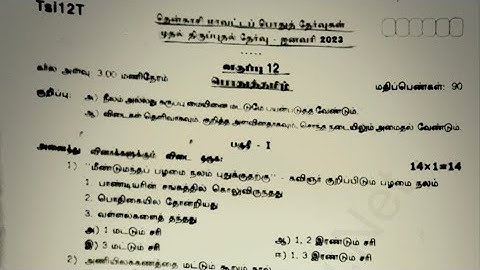 Tsl12T
தென்காசி மாவட்டப் பொதுத் தேர்வுகள்
முதல் திருப்புதல் தேர்வு - ஜனவரி 2023
வகுப்பு 12
கால அளவு 3.00 மணிநேரம்
பொதுத்தமிழ்
மதிப்பெண்கள்: 90
குறிப்பு: அ) நீலம் அல்லது கருப்பு மையினை மட்டுமே பயன்படுத்த வேண்டும்.
ஆ) விடைகள் தெளிவாகவும், குறித்த அளவினதாகவும், சொந்த நடையிலும் அமைதல் வேண்டும்.
பகுதி - I
அனைத்து வினாக்களுக்கும் விடை தருக:
14×1=14
1) "மீண்டுமந்தப் பழமை நலம் புதுக்குதற்கு" - கவிஞர் குறிப்பிடும் பழமை நலம்
1. பாண்டியரின் சங்கத்தில் கொலுவிருந்தது
2. பொதிகையில் தோன்றியது
3. வள்ளல்களைத் தந்தது
அ) 1 மட்டும் சரி
ஆ) 1, 2 இரண்டும் சரி
இ) 3 மட்டும் சரி
ஈ) 1, 3 இரண்டும் சரி
2) அணியிலக்கணத்தை மட்டும் கூறும் நூல்